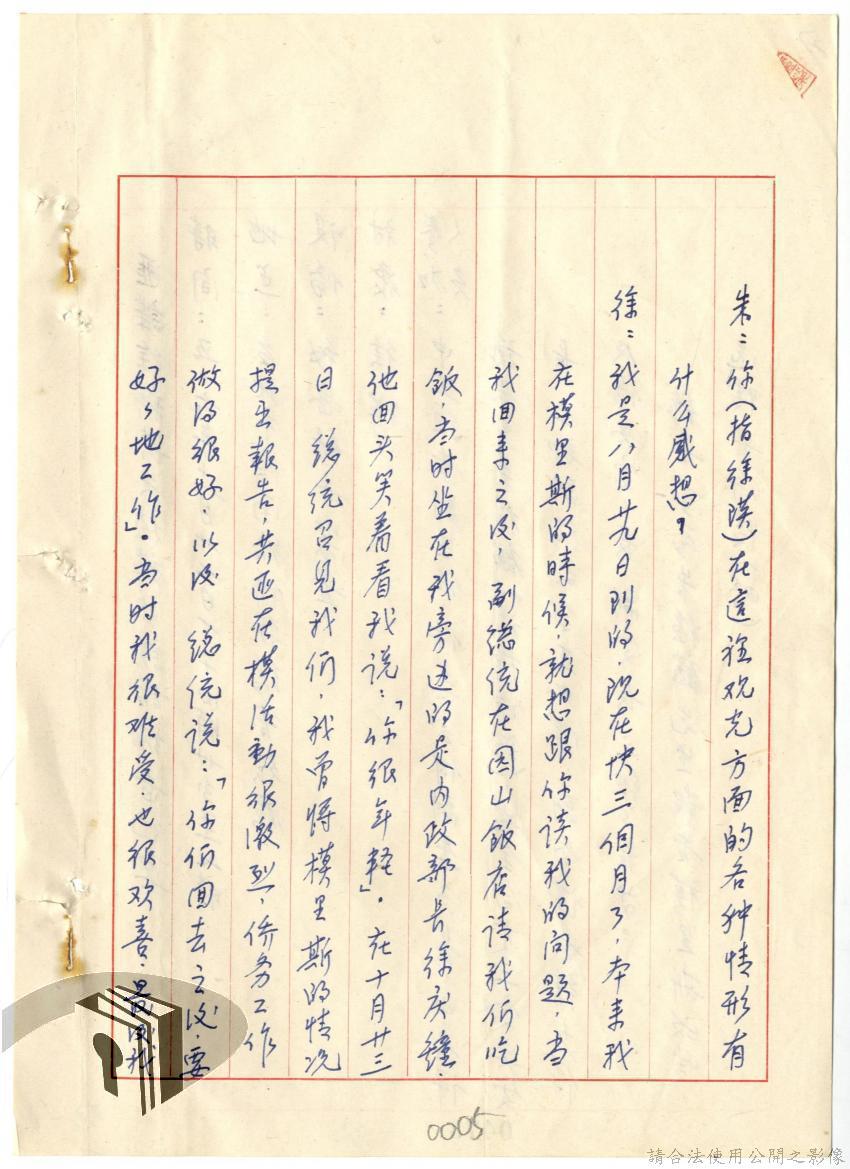 朱：你（指徐瑛）在這裡观光方面的各种情形有
什么感想？
徐：我是八月廿九日到的，現在快三個月了，本来我
在模里斯的時候，就想跟你谈我的问题，当
我回来之後，副總統在圆山飯店请我们吃
飯，当时坐在我旁边的是内政部长徐庆鐘，
他回头笑着看我说：「你很年轻」。在十月廿三
日 總統召見我们，我曾将模里斯的情况
提出報告，共匪在模活動很激烈，侨务工作
做得很好，以後 總统说：「你们回去之後，要
好々地工作」。当时我很难受，也很欢喜，最後我
0005
請合法使用公開之影像